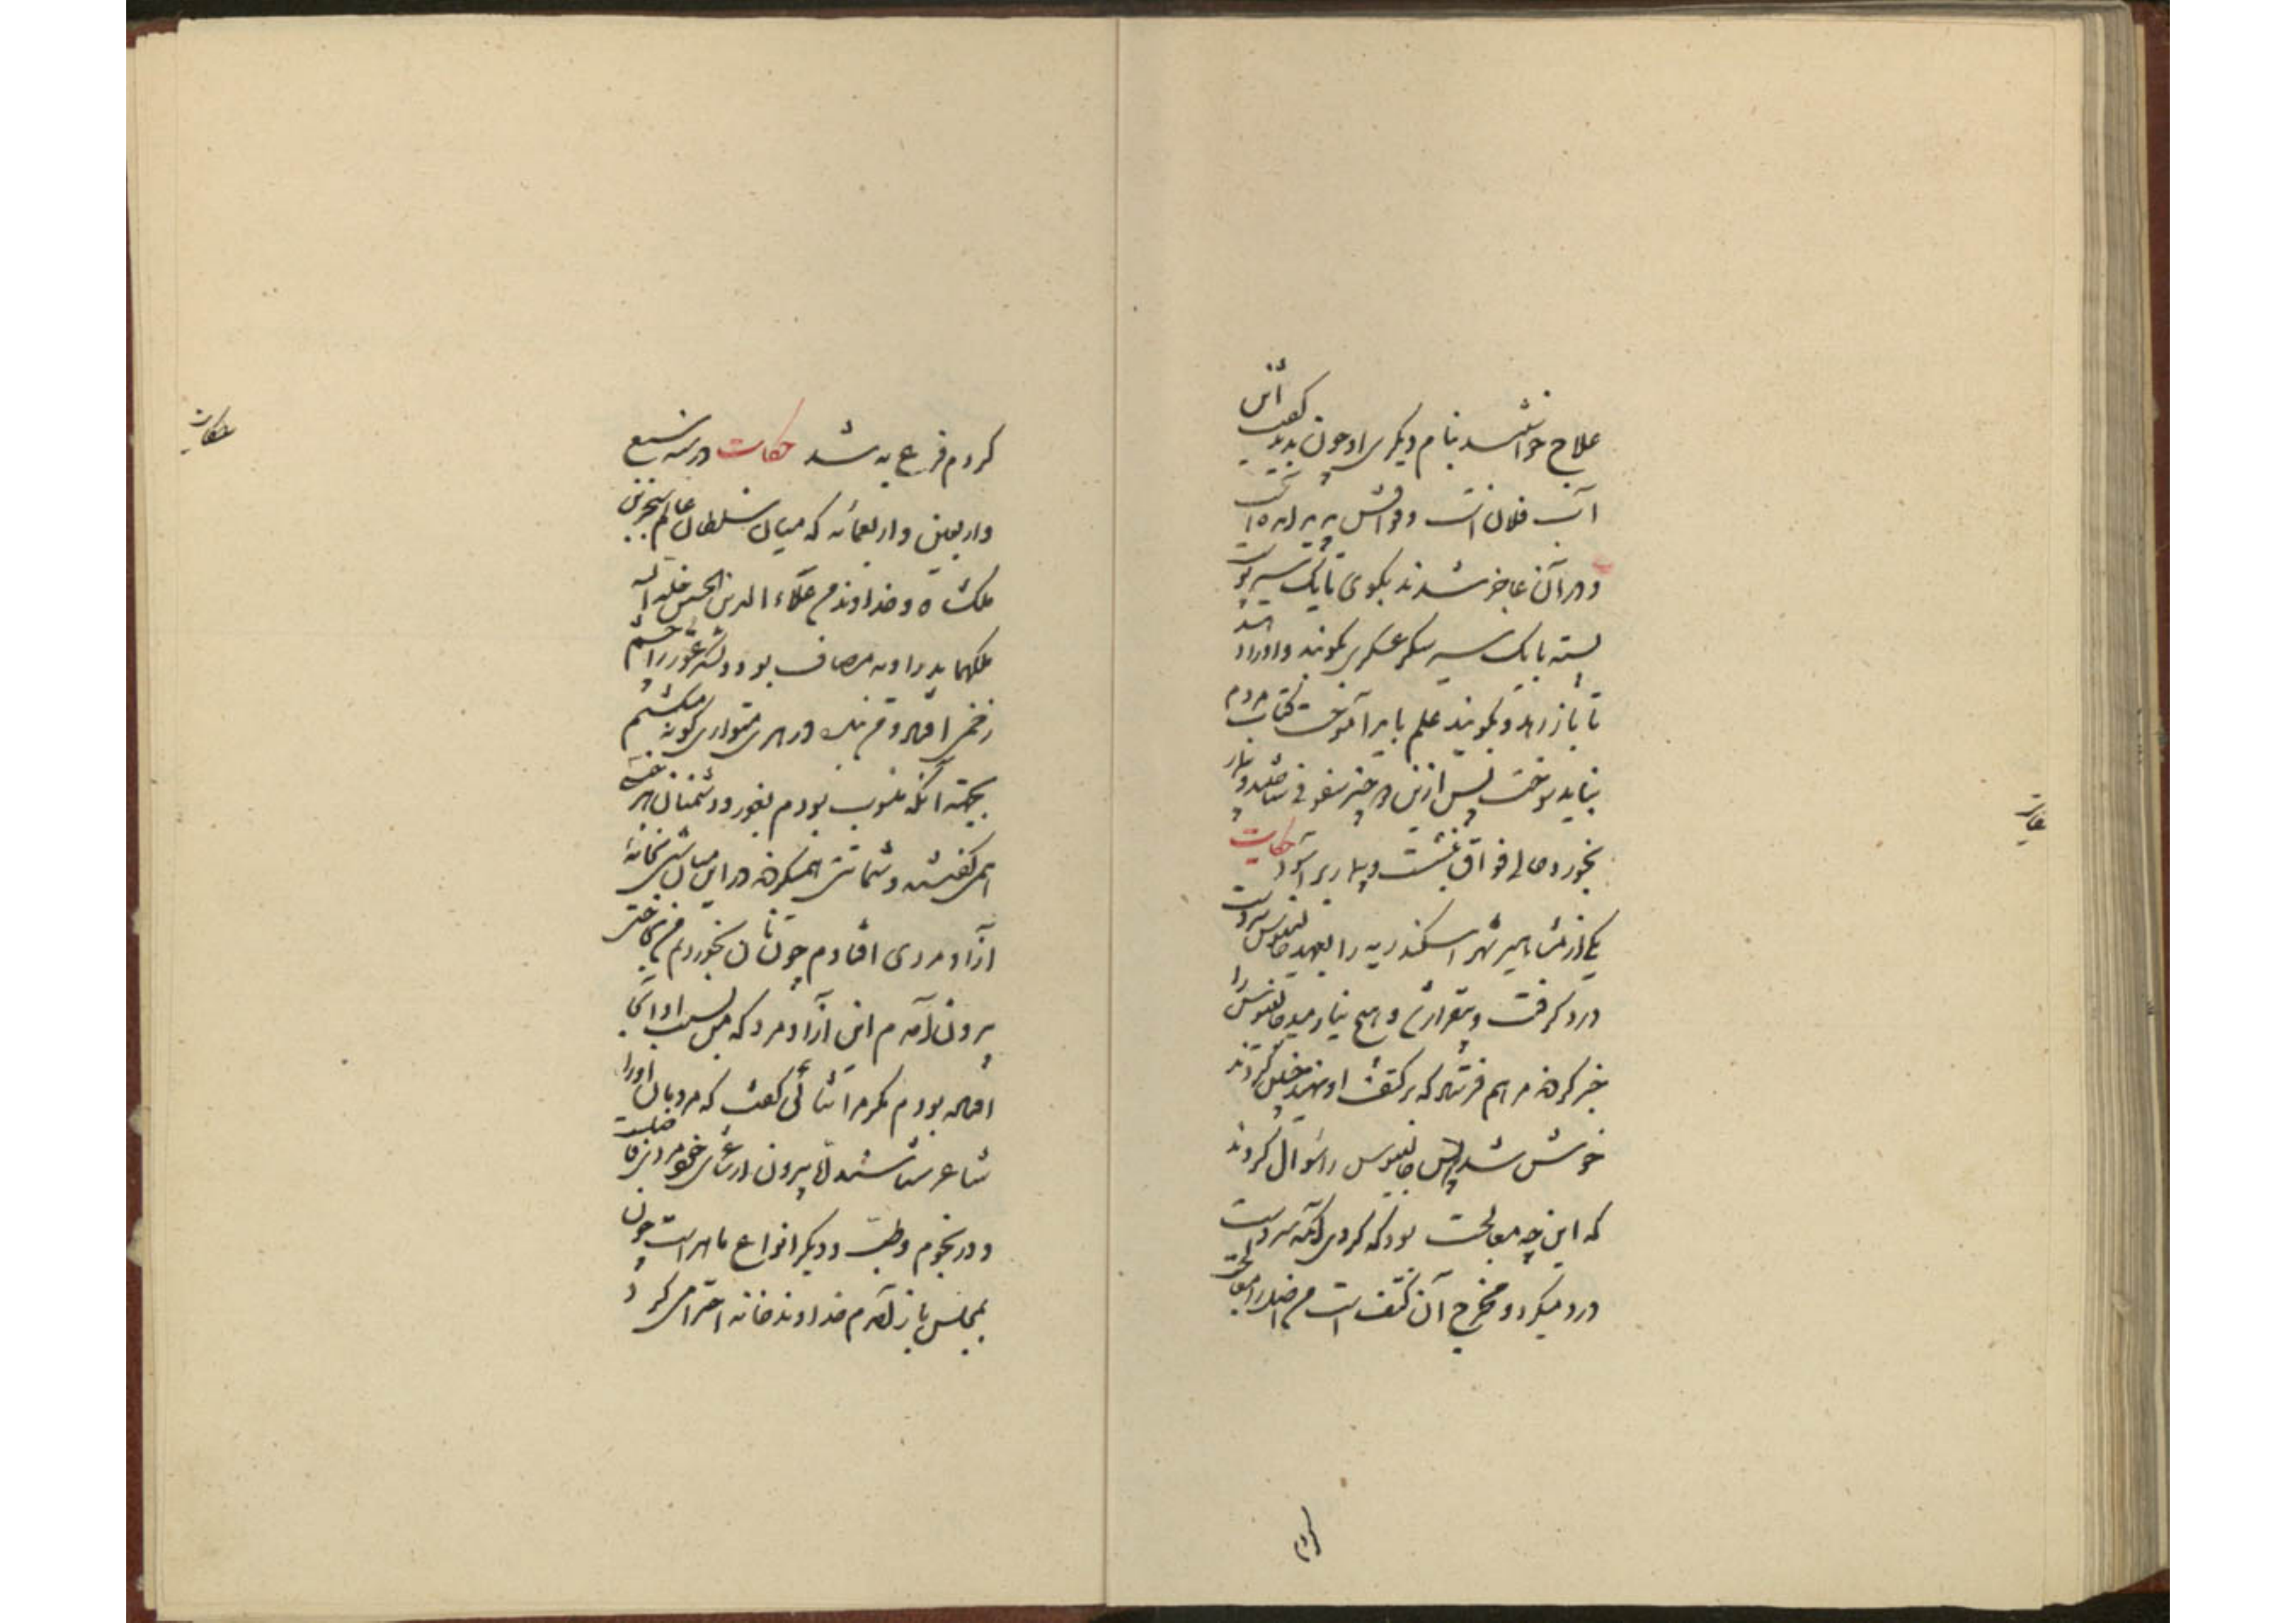 علاج خواستند بنام دیگری او چون بدید گفت این
آب فلان است و فواقش پدید آمده است
و در آن عاجز شدند بگوی تا یک سیر پوست
پسته با یک سیر شکر عسکری بکوبند و او را دهند
تا باز رهد و بگویند علم بباید آموخت کتاب مردم
نباید سوخت پس ازین دو چیز سفوفی ساختند و بیمار
بخورد و حالی فواق بنشست و بیمار برآسود حکایت
یکی از مشاهیر شهر اسکندریه را بعهد جالینوس سر دست
درد گرفت و بیقرار شد و هیچ نیارمید جالینوس را
خبر کردند مرهم فرستاد که بر کتف او نهند چنین کردند
خوش شد پس جالینوس را سؤال کردند
که این چه معالجت بود که کردی گفت آنکه سر دست
درد میکرد و مخرج آن کتف است من اصل را معالجت
کردم
کردم فرع به شد حکایت در سنه سبع
و اربعین و اربعمائه که میان سلطان عالم سنجر بن
ملکشاه و خداوندم علاء الدین الحسین خلد الله
ملکهما بدر اوبه مصاف بود و لشکر غور را چشم
زخمی افتاد و من بنده در هری متواری گونه میگشتم
بجهت آنکه منسوب بودم بغور و دشمنان هر چیزی
همی گفتند و شماتتی همیکردند در این میان شبی بخانه
آزاد مردی افتادم چون نان بخوردیم من بحاجتی
بیرون آمدم این آزاد مرد که من بسبب او آنجا
افتاده بودم مگر مرا ثنائی گفت که مردمان او را
شاعر شناسند اما بیرون از شاعری خود مرد فاضلست
و در نجوم و طب و دیگر انواع ماهر است چون
بمجلس باز آمدم خداوند خانه احترامی کرد
حکایت
حکایت